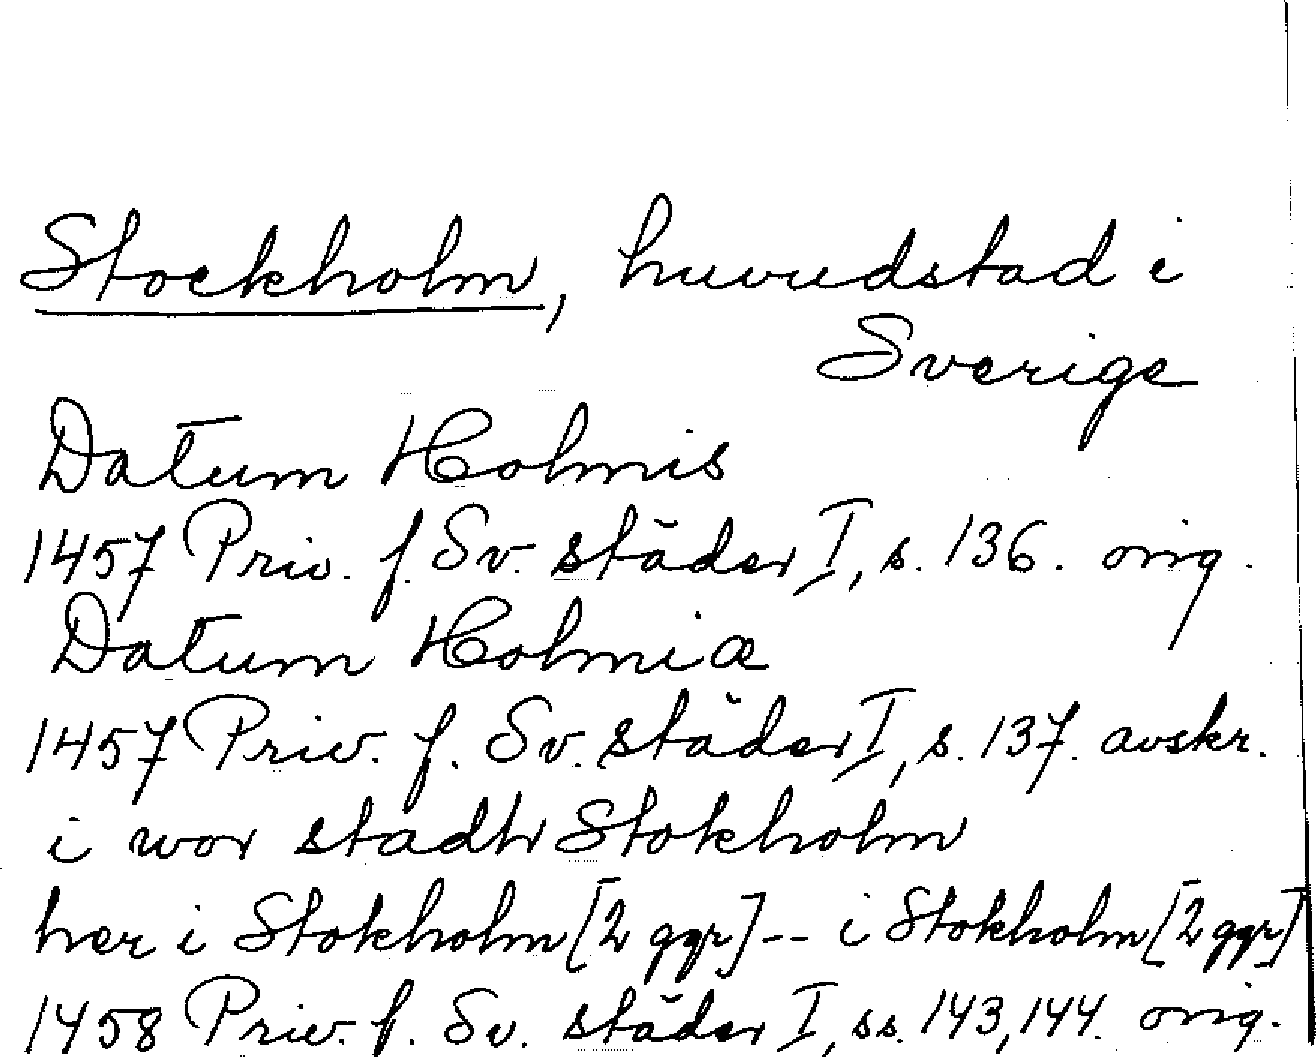 Stockholm, huvudstad i
Sverige
Datum Holmis
1457 Priv. f. Sv. städer I, s. 136. orig.
Datum Holmiæ
1457 Priv. f. Sv. städer I, s. 137. avskr.
i wor stadh Stokholm
her i Stokholm [2 ggr] -- i Stokholm [2 ggr]
1458 Priv. f. Sv. städer I, ss. 143, 144. orig.